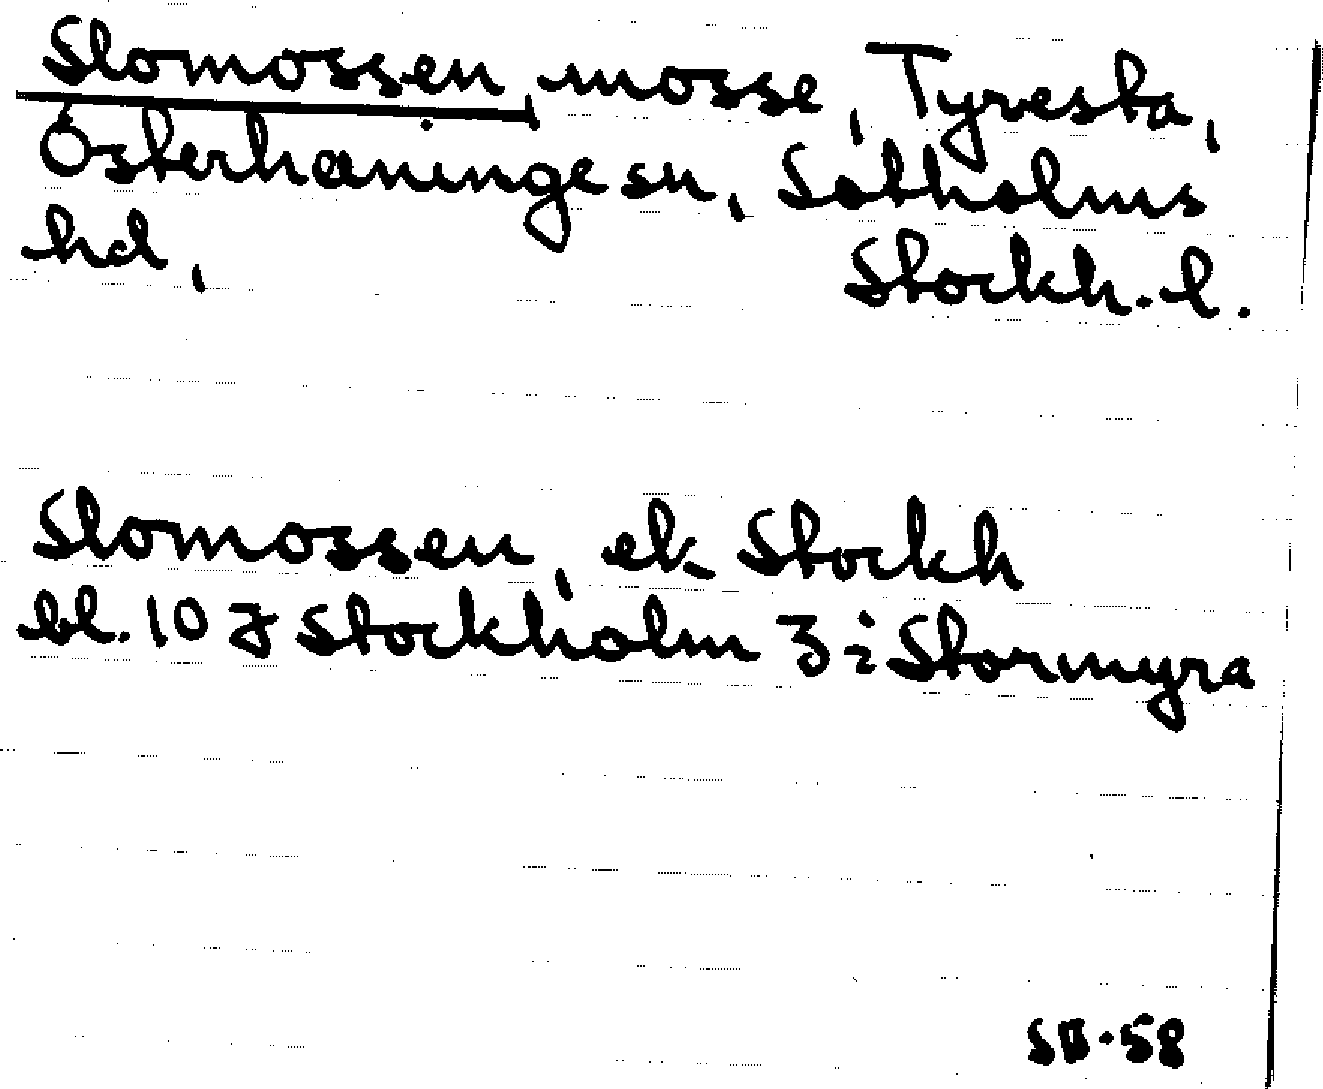 Slomossen, mosse, Tyresta,
Österhaninge sn, Sotholms
hd, Stockh. l.
Slomossen, ek Stockh
bl. 10 J Stockholm 3 i Stormyra
SB-58